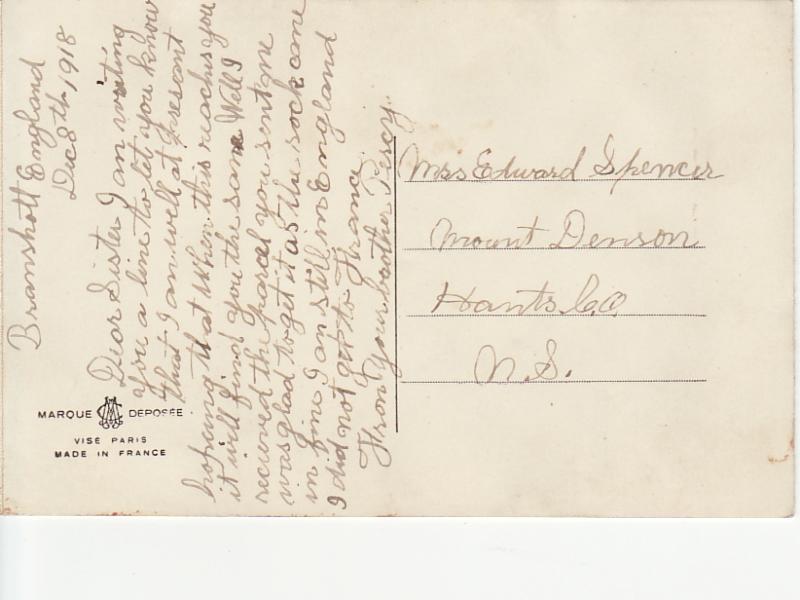 Bramshott England
Dec 8th 1918
Dear Sister I am writing
you a line to let you know
that I am well at preseant
hopeing that when this reaches you
it will find you the same Well I
recieved the parcel you sent me
was glad to get it as the sock came
in fine I am still in England
I did not get to France
From your brother Percy
MARQUE DEPOSÉE
VISÉ PARIS
MADE IN FRANCE
Mrs Edward Spencer
Mount Denson
Hants Co
N.S.